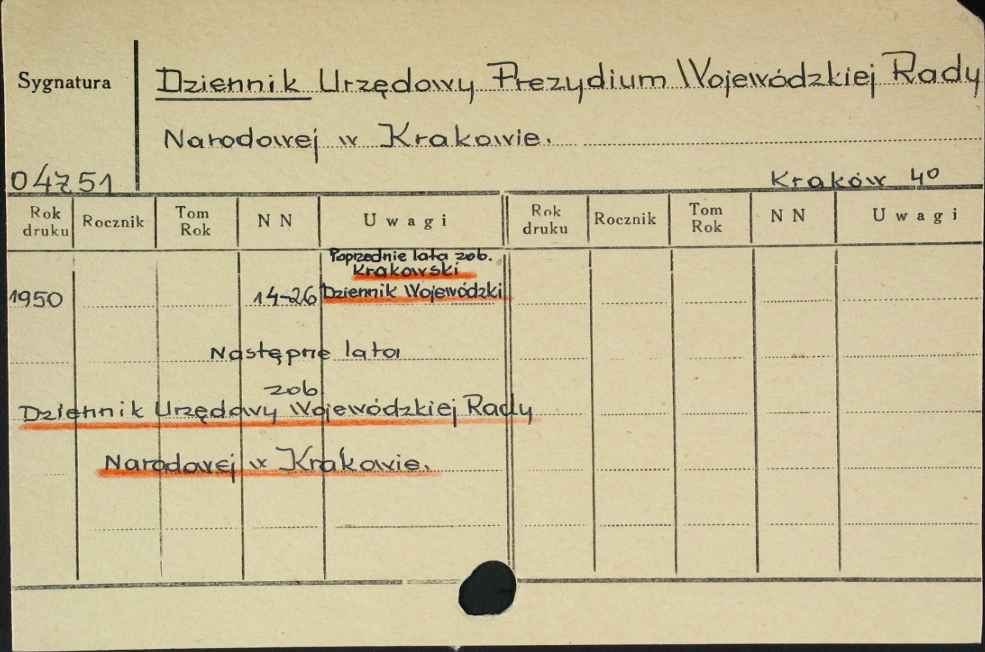 Sygnatura
Dziennik Urzędowy Prezydium Wojewódzkiej Rady
Narodowej w Krakowie.
04751
Kraków 4º
Rok druku Rocznik Tom Rok NN Uwagi Rok druku Rocznik Tom Rok NN Uwagi
Poprzednie lata zob.
Krakowski
1950 14-26 Dziennik Wojewódzki
Następne lata
zob
Dziennik Urzędowy Wojewódzkiej Rady
Narodowej w Krakowie.